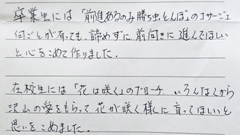 卒業生には「前進あるのみ勝ち虫とんぼ」のコサージュ
何ごとが有っても、諦めずに前向きに進んでほしい
と心をこめて作りました。
在校生には「花は咲く」のブローチ いろんな人から
沢山の愛をもらって花が咲く様に育ってほしいと
思いをこめました。